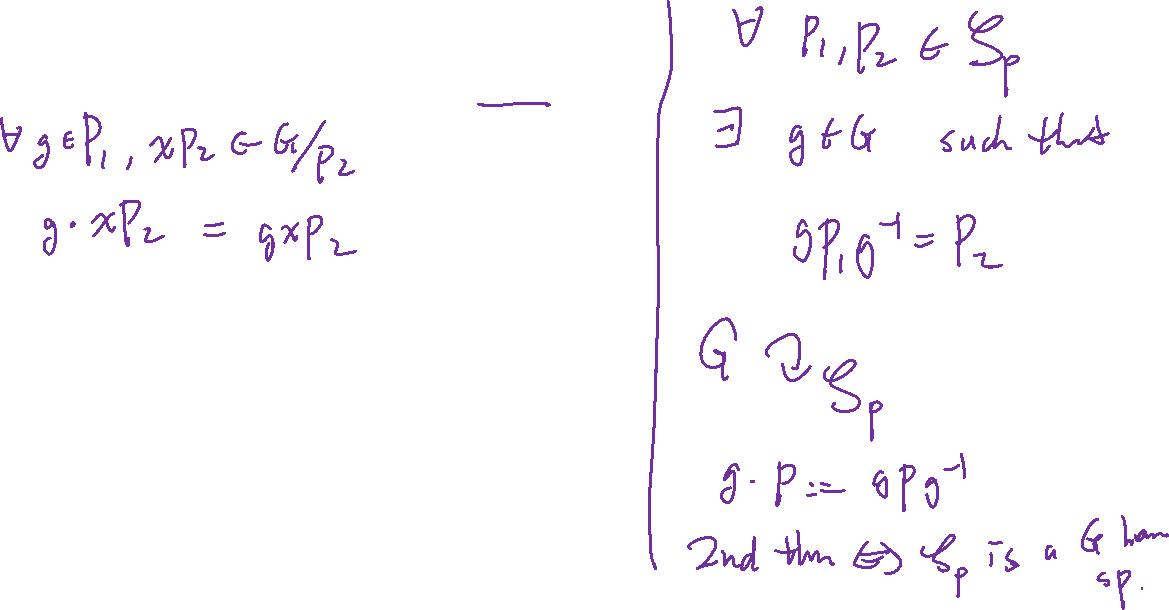 ∀ g ∈ P₁, xP₂ ∈ G/P₂
g · xP₂ = gxP₂
∀ P₁, P₂ ∈ 𝒮ₚ
∃ g ∈ G such that
gP₁g⁻¹ = P₂
G ↻ 𝒮ₚ
g · P := gPg⁻¹
2nd thm ⇔ 𝒮ₚ is a G hom
sp.